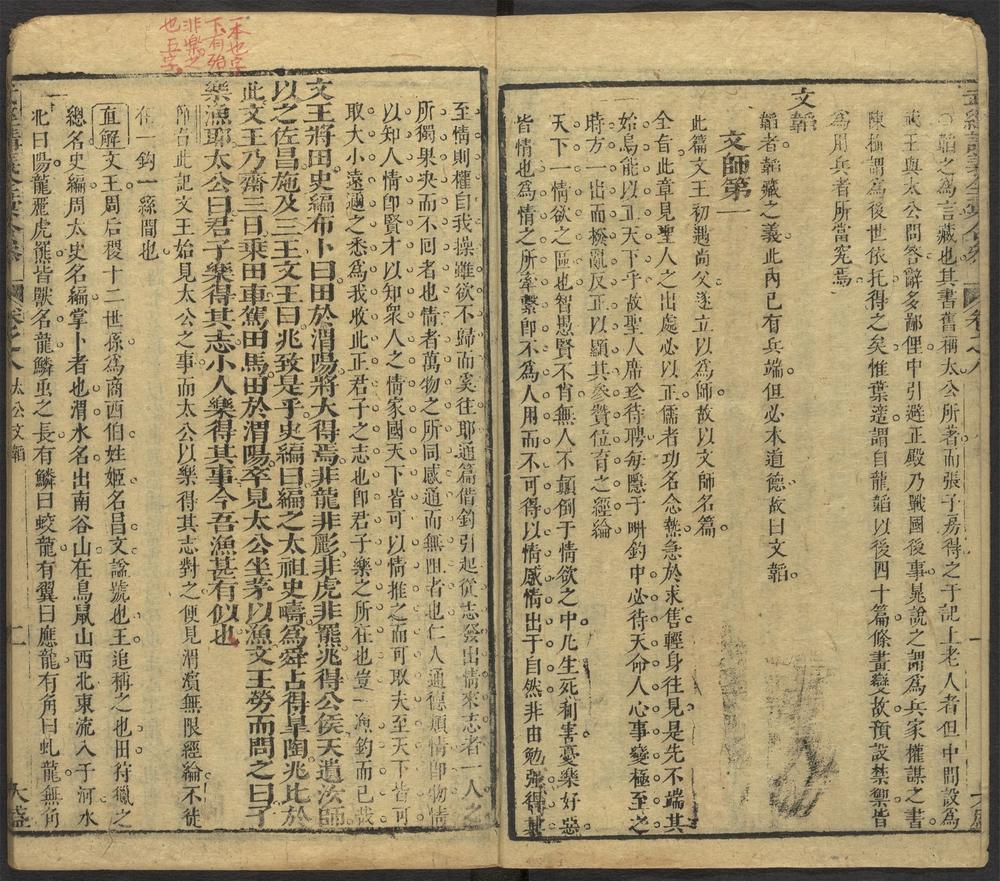 韜之為言藏也其書舊稱太公所著而張子房得之于圯上老人者但中間設為
武王與太公問答辭多鄙俚中引避正殿乃戰國後事晁說之謂為兵家權謀之書
陳 謂為後世依托得之矣惟葉適謂自龍韜以後四十篇條畫變故預設禁禦皆
為用兵者所當究焉
文韜
韜者韜藏之義此內已有兵端但必本道德故曰文韜
文師第一
此篇文王初遇尚父遂立以為師故以文師名篇
全旨此章見聖人之出處必以正儒者功名念熱急於求售輕身往見是先不端其
始烏能以正天下乎故聖人席珍待聘每隱于畊釣中必待天命人心事變極至之
時方一出而撥亂反正以顯其參贊位育之經綸
天下一情欲之區也智愚賢不肖無人不顛倒于情欲之中凡生死利害憂樂好惡
皆情也為情之所牽繫即不為人用而不可得以情感情出于自然非由勉強得其
至情則權自我操雖欲不歸而奚往耶通篇借釣引起從志發出情來志者一人之
所獨果決而不回者也情者萬物之所同感通而無阻者也仁人通德類情即物情
以知人情即賢才以知衆人之情家國天下皆可以情推之而可取夫至天下皆可
取大小遠邇之悉為我收此正君子之志也即君子樂之所在也豈一漁釣而已哉
文王將田史編布卜曰田於渭陽將大得焉非龍非彲非虎非羆兆得公侯天遺汝師
以之佐昌施及三王文王曰兆致是乎史編曰編之太祖史疇為舜占得皐陶兆比於
此文王乃齋三日乘田車駕田馬田於渭陽卒見太公坐茅以漁文王勞而問之曰子
樂漁耶太公曰君子樂得其志小人樂得其事今吾漁甚有似也
一本也字
下有殆
非樂之
也五字
節旨此記文王始見太公之事而太公以樂得其志對之便見渭濱無限經綸不徒
在一鈎一絲間也
直解文王周后稷十二世孫為商西伯姓姬名昌文諡號也王追稱之也田狩獵之
總名史編周太史名編掌卜者也渭水名出南谷山在鳥鼠山西北東流入于河水
北曰陽龍彲虎羆皆獸名龍鱗虫之長有鱗曰蛟龍有翼曰應龍有角曰虬龍無角
卷之八 太公文韜
二
大盛